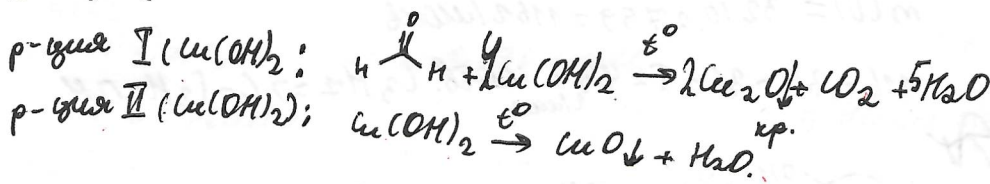 р-ция I (Cu(OH)₂: H H + 4Cu(OH)₂ t° → 2Cu₂O↓ + CO₂ + 5H₂O
кр.
р-ция II (Cu(OH)₂); Cu(OH)₂ t° → CuO↓ + H₂O.